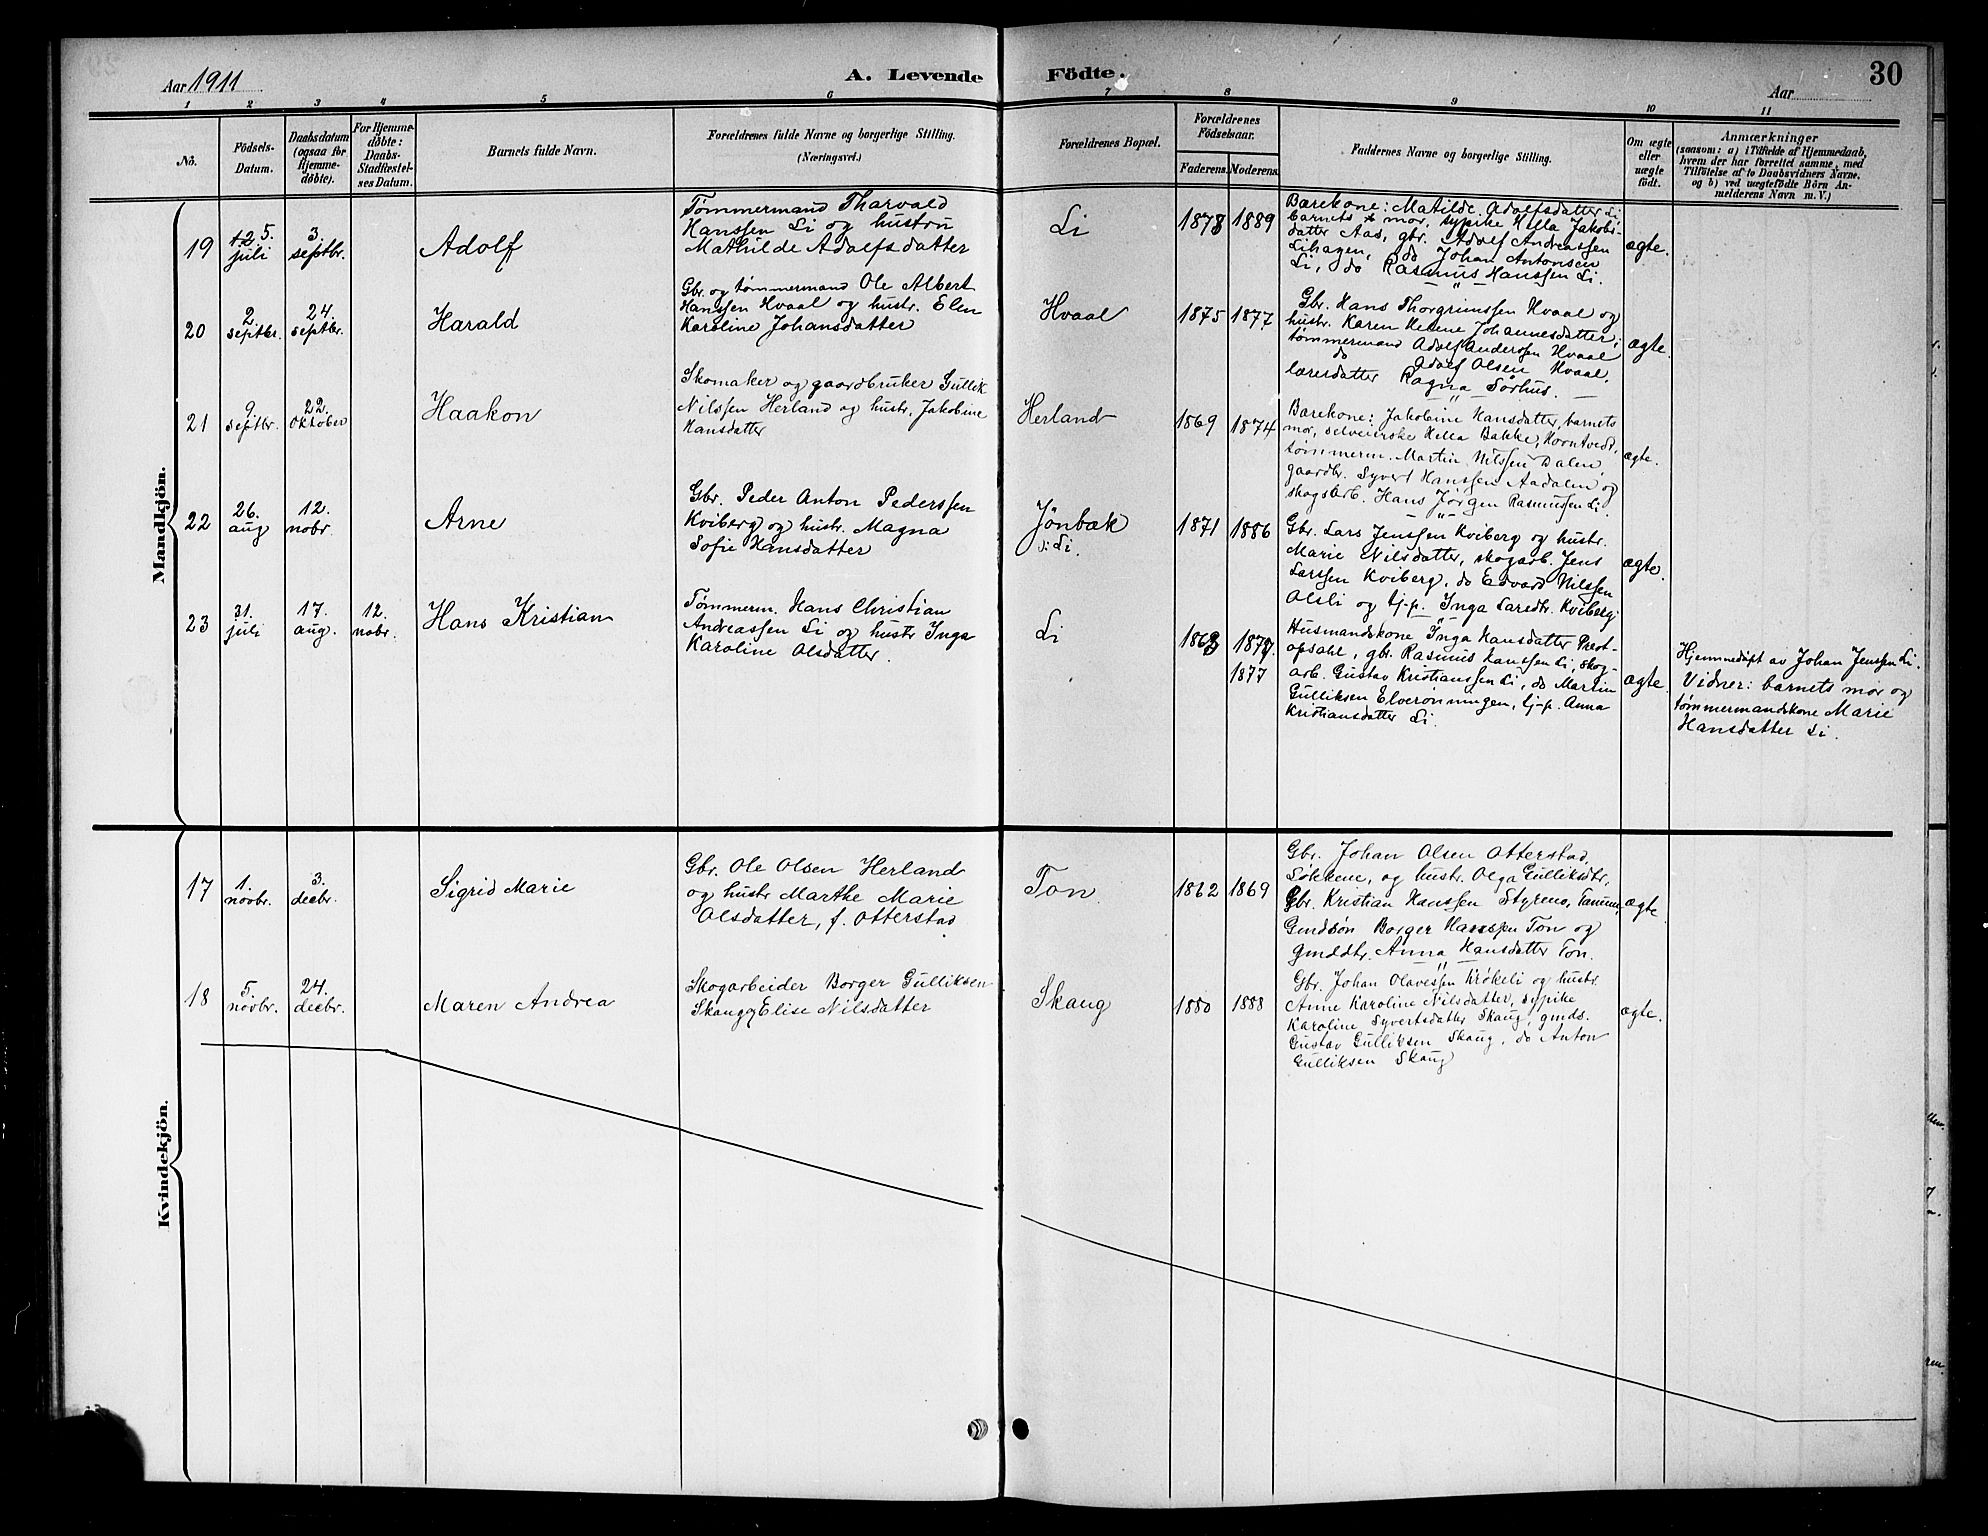 Aar 1911
A. Levende
Födte.
30
Aar
1 2 3 4 5 6 7 8 9 10 11
Nö.
Födsels-
Datum.
Daabsdatum
(ogsaa for
Hjemme-
döbte).
For Hjemme-
döbte:
Daabs-
Stadfæstel-
ses Datum.
Barnets fulde Navn.
Forældrenes fulde Navne og borgerlige Stilling.
(Næringsvei.)
Forældrenes Bopæl.
Forældrenes
Födselsaar.
Faderens.
Moderens.
Faddernes Navne og borgerlige Stilling.
Om ægte
eller
uægte
födt.
Anmærkninger
(saasom: a) i Tilfælde af Hjemmedaab,
hvem der har forrettet samme, med
Tilföielse af to Daabsvidners Navne.
og b) ved uægtefödte Börn An-
melderens Navn m. V.)
Mandkjön.
19
5.
juli
3.
septbr.
Adolf
Tømmermand Tharvald
Hanssen Li og hustru
Mathilde Adolfsdatter
Li
1878
1889
Bærekone: Matilde Adolfsdatter Li
barnets mor, sypike Hella Jakobs-
datter Aas, gbr. Adolf Andreassen
Lihagen, do Johan Antonsen
Li, do Rasmus Hanssen Li.
ægte.
20
2.
septbr.
24.
septbr.
Harald
Gbr. og tømmermand Ole Albert
Hanssen Hvaal og hustr. Elen
Karoline Johansdatter
Hvaal
1875
1877
Gbr. Hans Thorgrimssen Hvaal og
hustr. Karen Helene Johannesdatter,
tømmermand Adolf Anderssen Hvaal
do Adolf Olsen Hvaal,
lærerdatter Ragna Sørhus.
ægte.
21
9.
septbr.
22.
oktober
Haakon
Skomaker og gaardbruker Gullik
Nilssen Herland og hustr. Jakobine
Hansdatter
Herland
1869
1874
Bærekone: Jakobine Hansdatter, barnets
mor, selveierske Hella Bakke, Hvontvedt,
tømmerm. Martin Nilssen Dalen,
gaardbr. Syvert Hanssen Aadalen og
skogsarb. Hans Jørgen Rasmussen Li.
ægte.
22
26.
aug
12.
nobr.
Arne
Gbr. Peder Anton Pederssen
Kviberg og hustr. Magna
Sofie Hansdatter
Jönbæk
i Li.
1871
1886
Gbr. Lars Jenssen Kviberg og hustr.
Marie Nilsdatter, skogarb. Jens
Larssen Kviberg, do Edvard Nilssen
Olsli og tj-p. Inga Larsdtr. Kviberg.
ægte.
23
31.
juli
17.
aug.
12.
nobr.
Hans Kristian
Tømmerm. Hans Christian
Andreassen Li og hustr Inga
Karoline Olsdatter.
Li
1868
1877
1877
Husmandskone Inga Hansdatter Prest-
opsahl, gbr. Rasmus Hanssen Li, skog-
arb. Gustav Kristianssen Li, do Martin
Gulliksen Elverønningen, tj-p. Anna
Kristiansdatter Li.
ægte.
Hjemmedöpt av Johan Jenssen Li.
Vidner: barnets mor og
tømmermandskone Marie
Hansdatter Li.
Kvindekjön.
17
1.
novbr.
3.
decbr.
Sigrid Marie
Gbr. Ole Olsen Herland
og hustr Marthe Marie
Olsdatter, f. Otterstad
Ton.
1862
1869
Gbr. Johan Olsen Otterstad,
Løkkene, og hustr. Olga Gulliksdtr,
Gbr. Kristian Hanssen Styrmo, Tanum,
Gmdsön Borger Hanssen Ton og
gmddtr. Anna Hansdatter Ton.
ægte
18
5.
novbr.
24.
decbr.
Maren Andrea
Skogarbeider Borger Gulliksen
Skaug og Elise Nilsdatter
Skaug
1880
1888
Gbr. Johan Olavessen Krøkeli og hustr.
Anne Karoline Nilsdatter, sypike
Karoline Syvertsdatter Skaug, gmds.
Gustav Gulliksen Skaug, do Anton
Gulliksen Skaug
ægte.